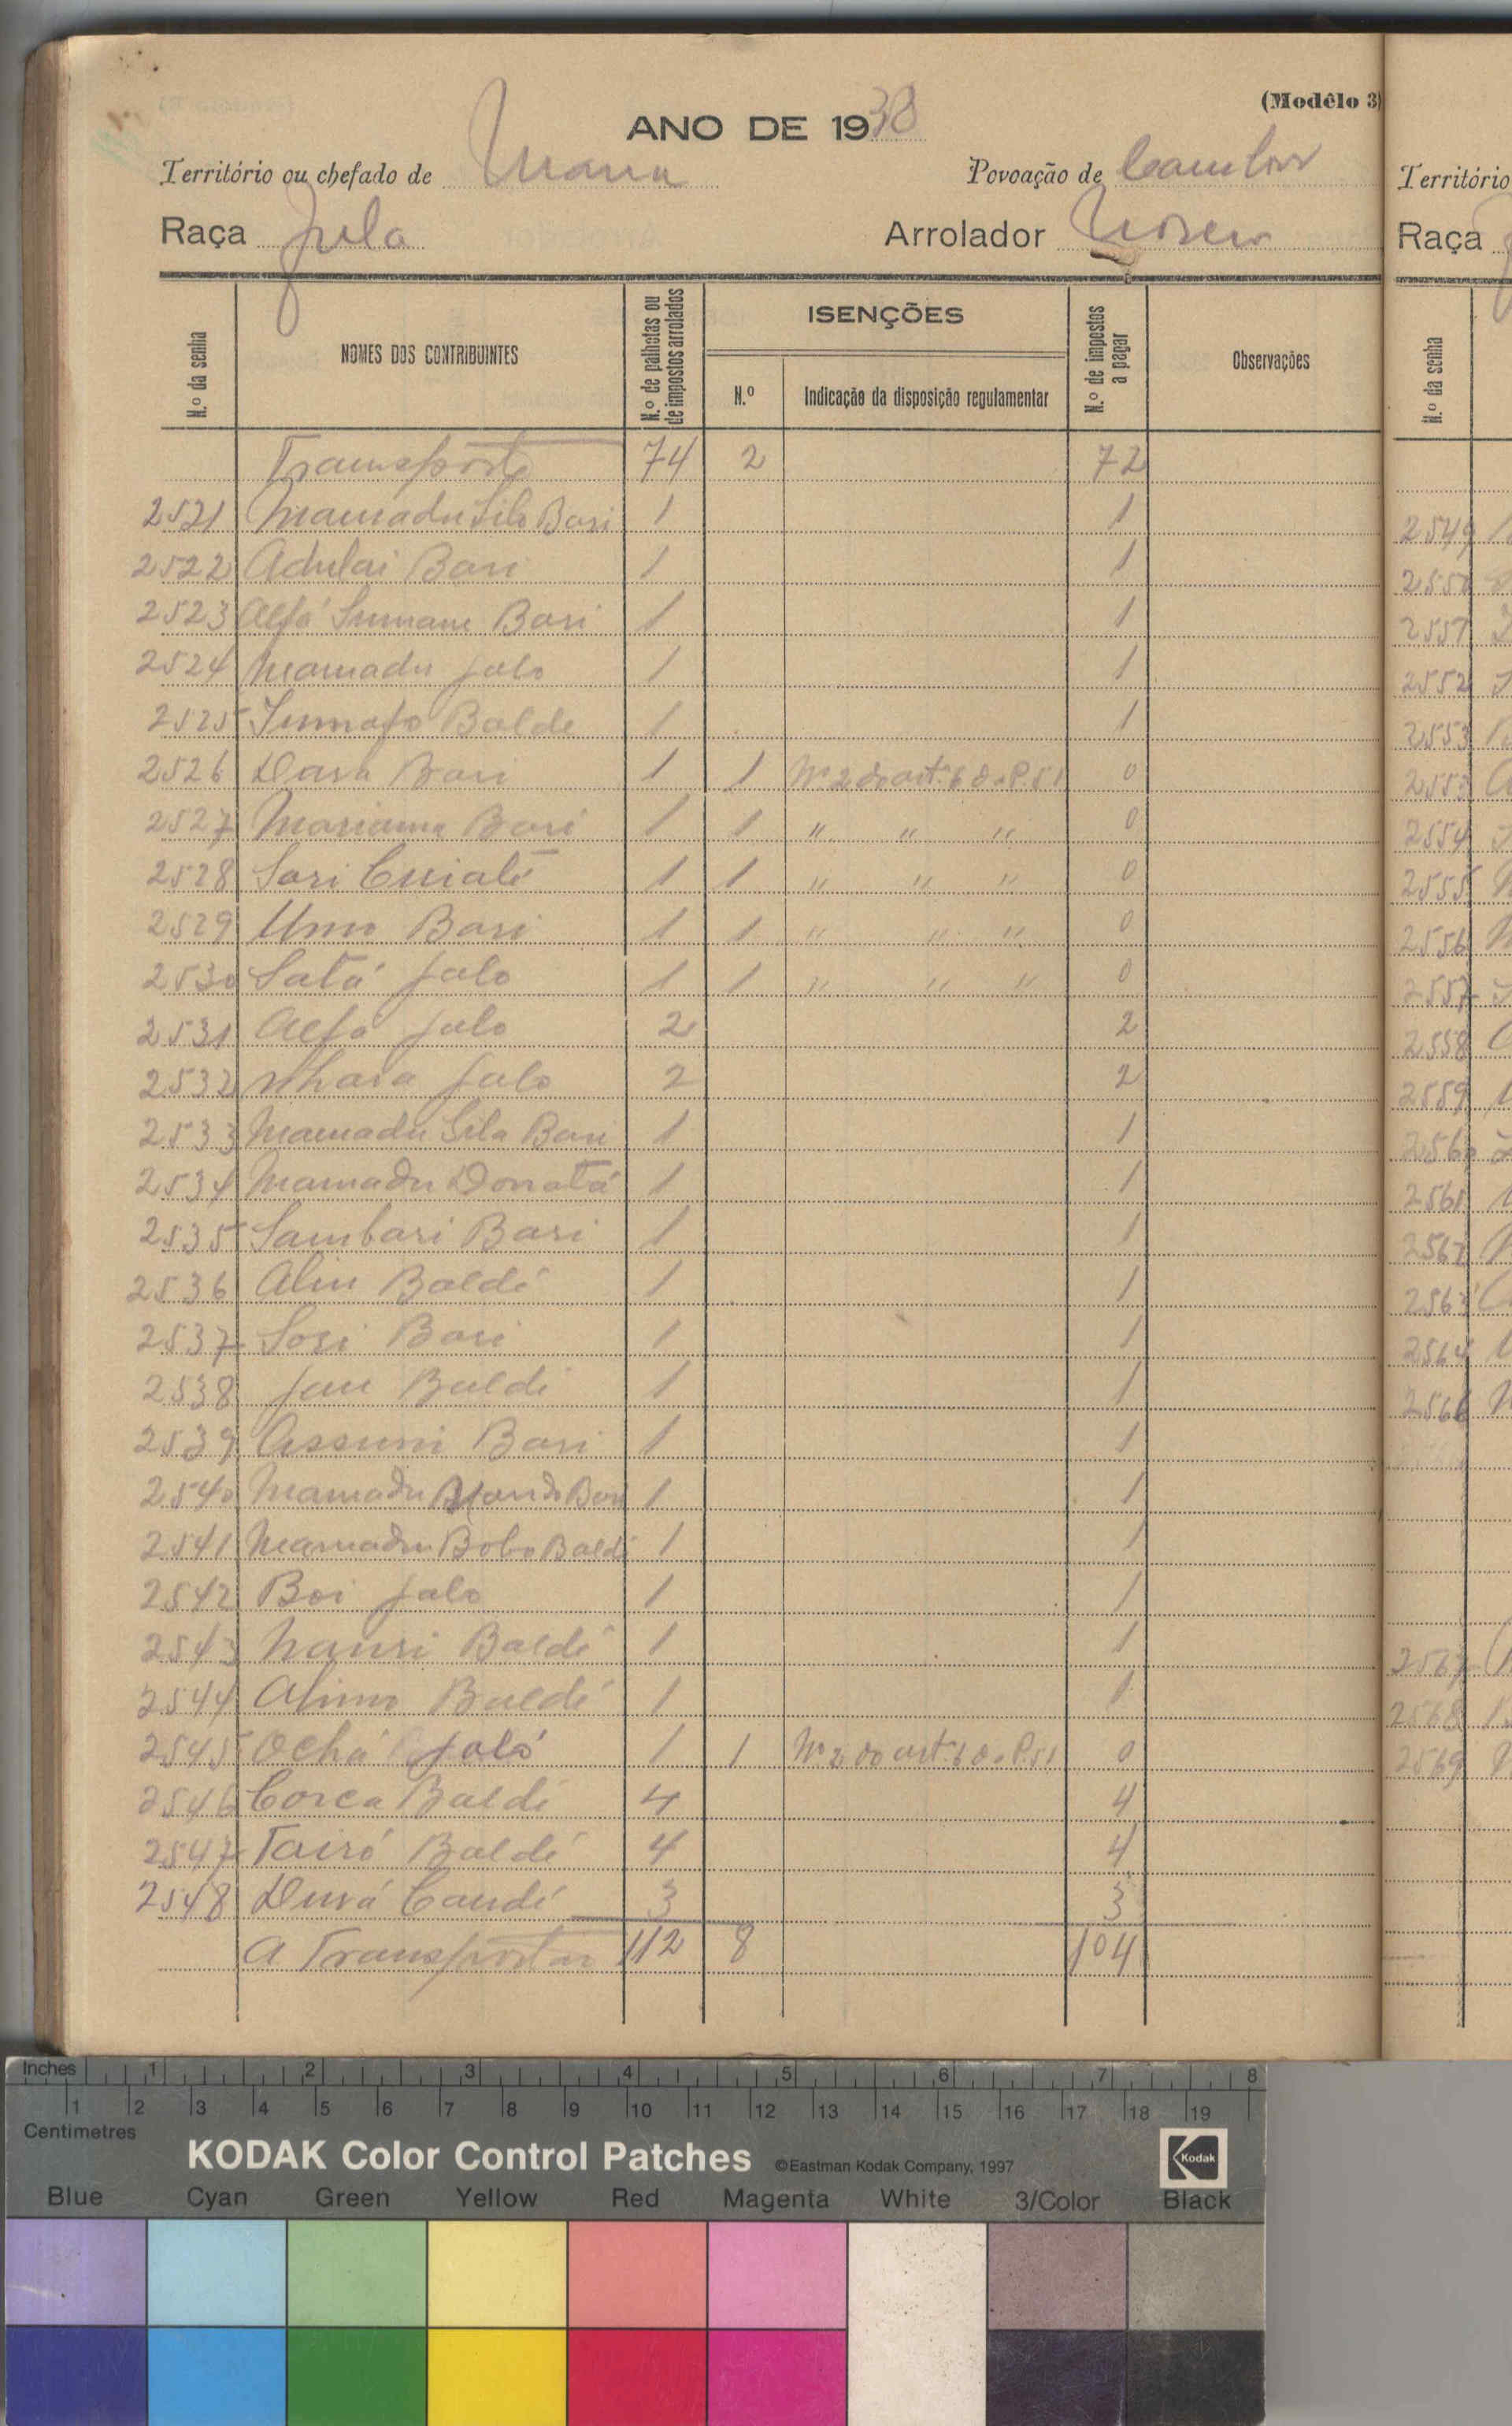 (Modêlo 3)
ANO DE 1938
Território ou chefado de
Povoação de
Raça Fula
Arrolador
N.º da senha
NOMES DOS CONTRIBUINTES
N.º de palhotas ou de impostos arrolados
ISENÇÕES
N.º
Indicação da disposição regulamentar
N.º de impostos a pagar
Observações
Transporte 74 2 72
2521 Mamadu Bari 1 1
2522 Adulai Bari 1 1
2523 Alfa Sumane Bari 1 1
2524 Mamadu Jalo 1 1
2525 Balde 1 1
2526 Bari 1 1 Nº 2 do art. 6 0
2527 Mariama Bari 1 1 " " " 0
2528 Sori 1 1 " " " 0
2529 Umo Bari 1 1 " " " 0
2530 Satá Jalo 1 1 " " " 0
2531 Alfa Jalo 2 2
2532 Jalo 2 2
2533 Mamadu Bari 1 1
2534 Mamadu Donatá 1 1
2535 Sambari Bari 1 1
2536 Aliu Baldé 1 1
2537 Sori Bari 1 1
2538 Baldé 1 1
2539 Assumi Bari 1 1
2540 Mamadu Bari 1 1
2541 Mamadu Bobo Baldé 1 1
2542 Boi Jalo 1 1
2543 Baldé 1 1
2544 Alimo Baldé 1 1
2545 Ochá Jaló 1 1 Nº 2 do art. 6 0
2546 Corca Baldé 4 4
2547 Tairó Baldé 4 4
2548 Candé 3 3
A Transportar 112 8 104
Território
Raça
N.º da senha
2549
2552
2553
2553
2554
2555
2556
2557
2558
2559
2560
2561
2564
2566
2567
2568
2569
Inches 1 2 3 4 5 6 7 8
1 2 3 4 5 6 7 8 9 10 11 12 13 14 15 16 17 18 19
Centimetres
KODAK Color Control Patches ©Eastman Kodak Company, 1997 Kodak
Blue Cyan Green Yellow Red Magenta White 3/Color Black